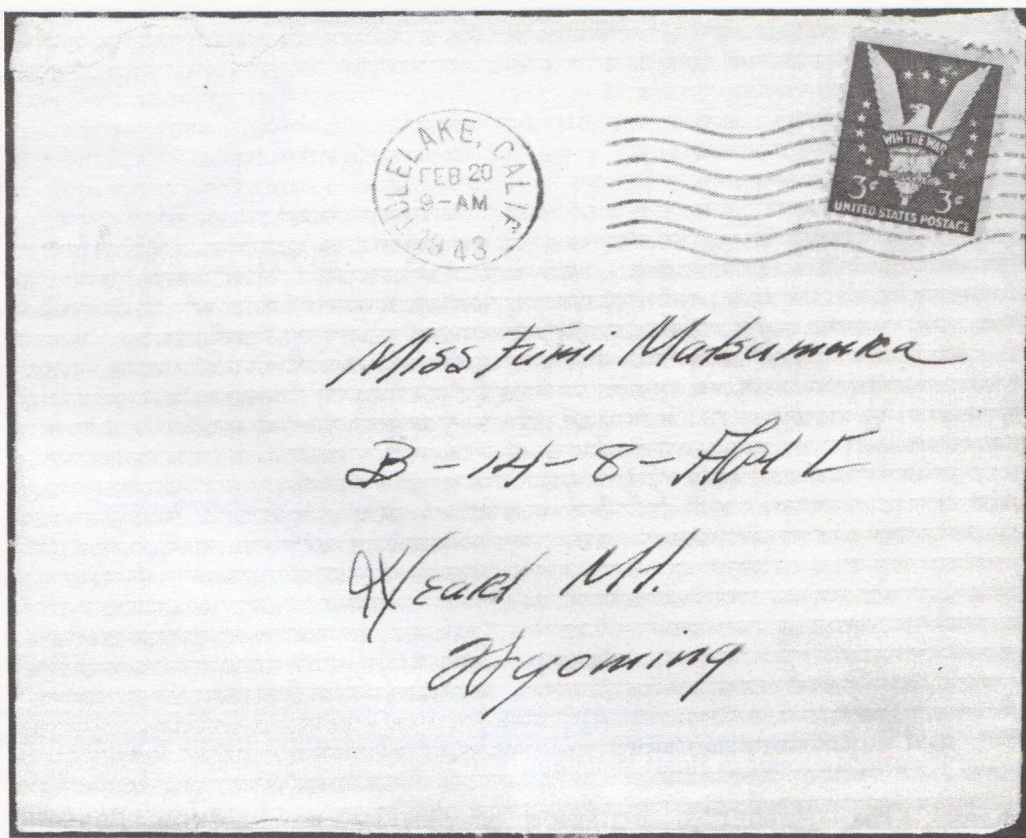 TULELAKE, CALIF.
FEB 20
9-AM
1943
WIN THE WAR
3¢ 3¢
UNITED STATES POSTAGE
Miss Fumi Matsumura
B-14-8-
Heart Mt
Wyoming